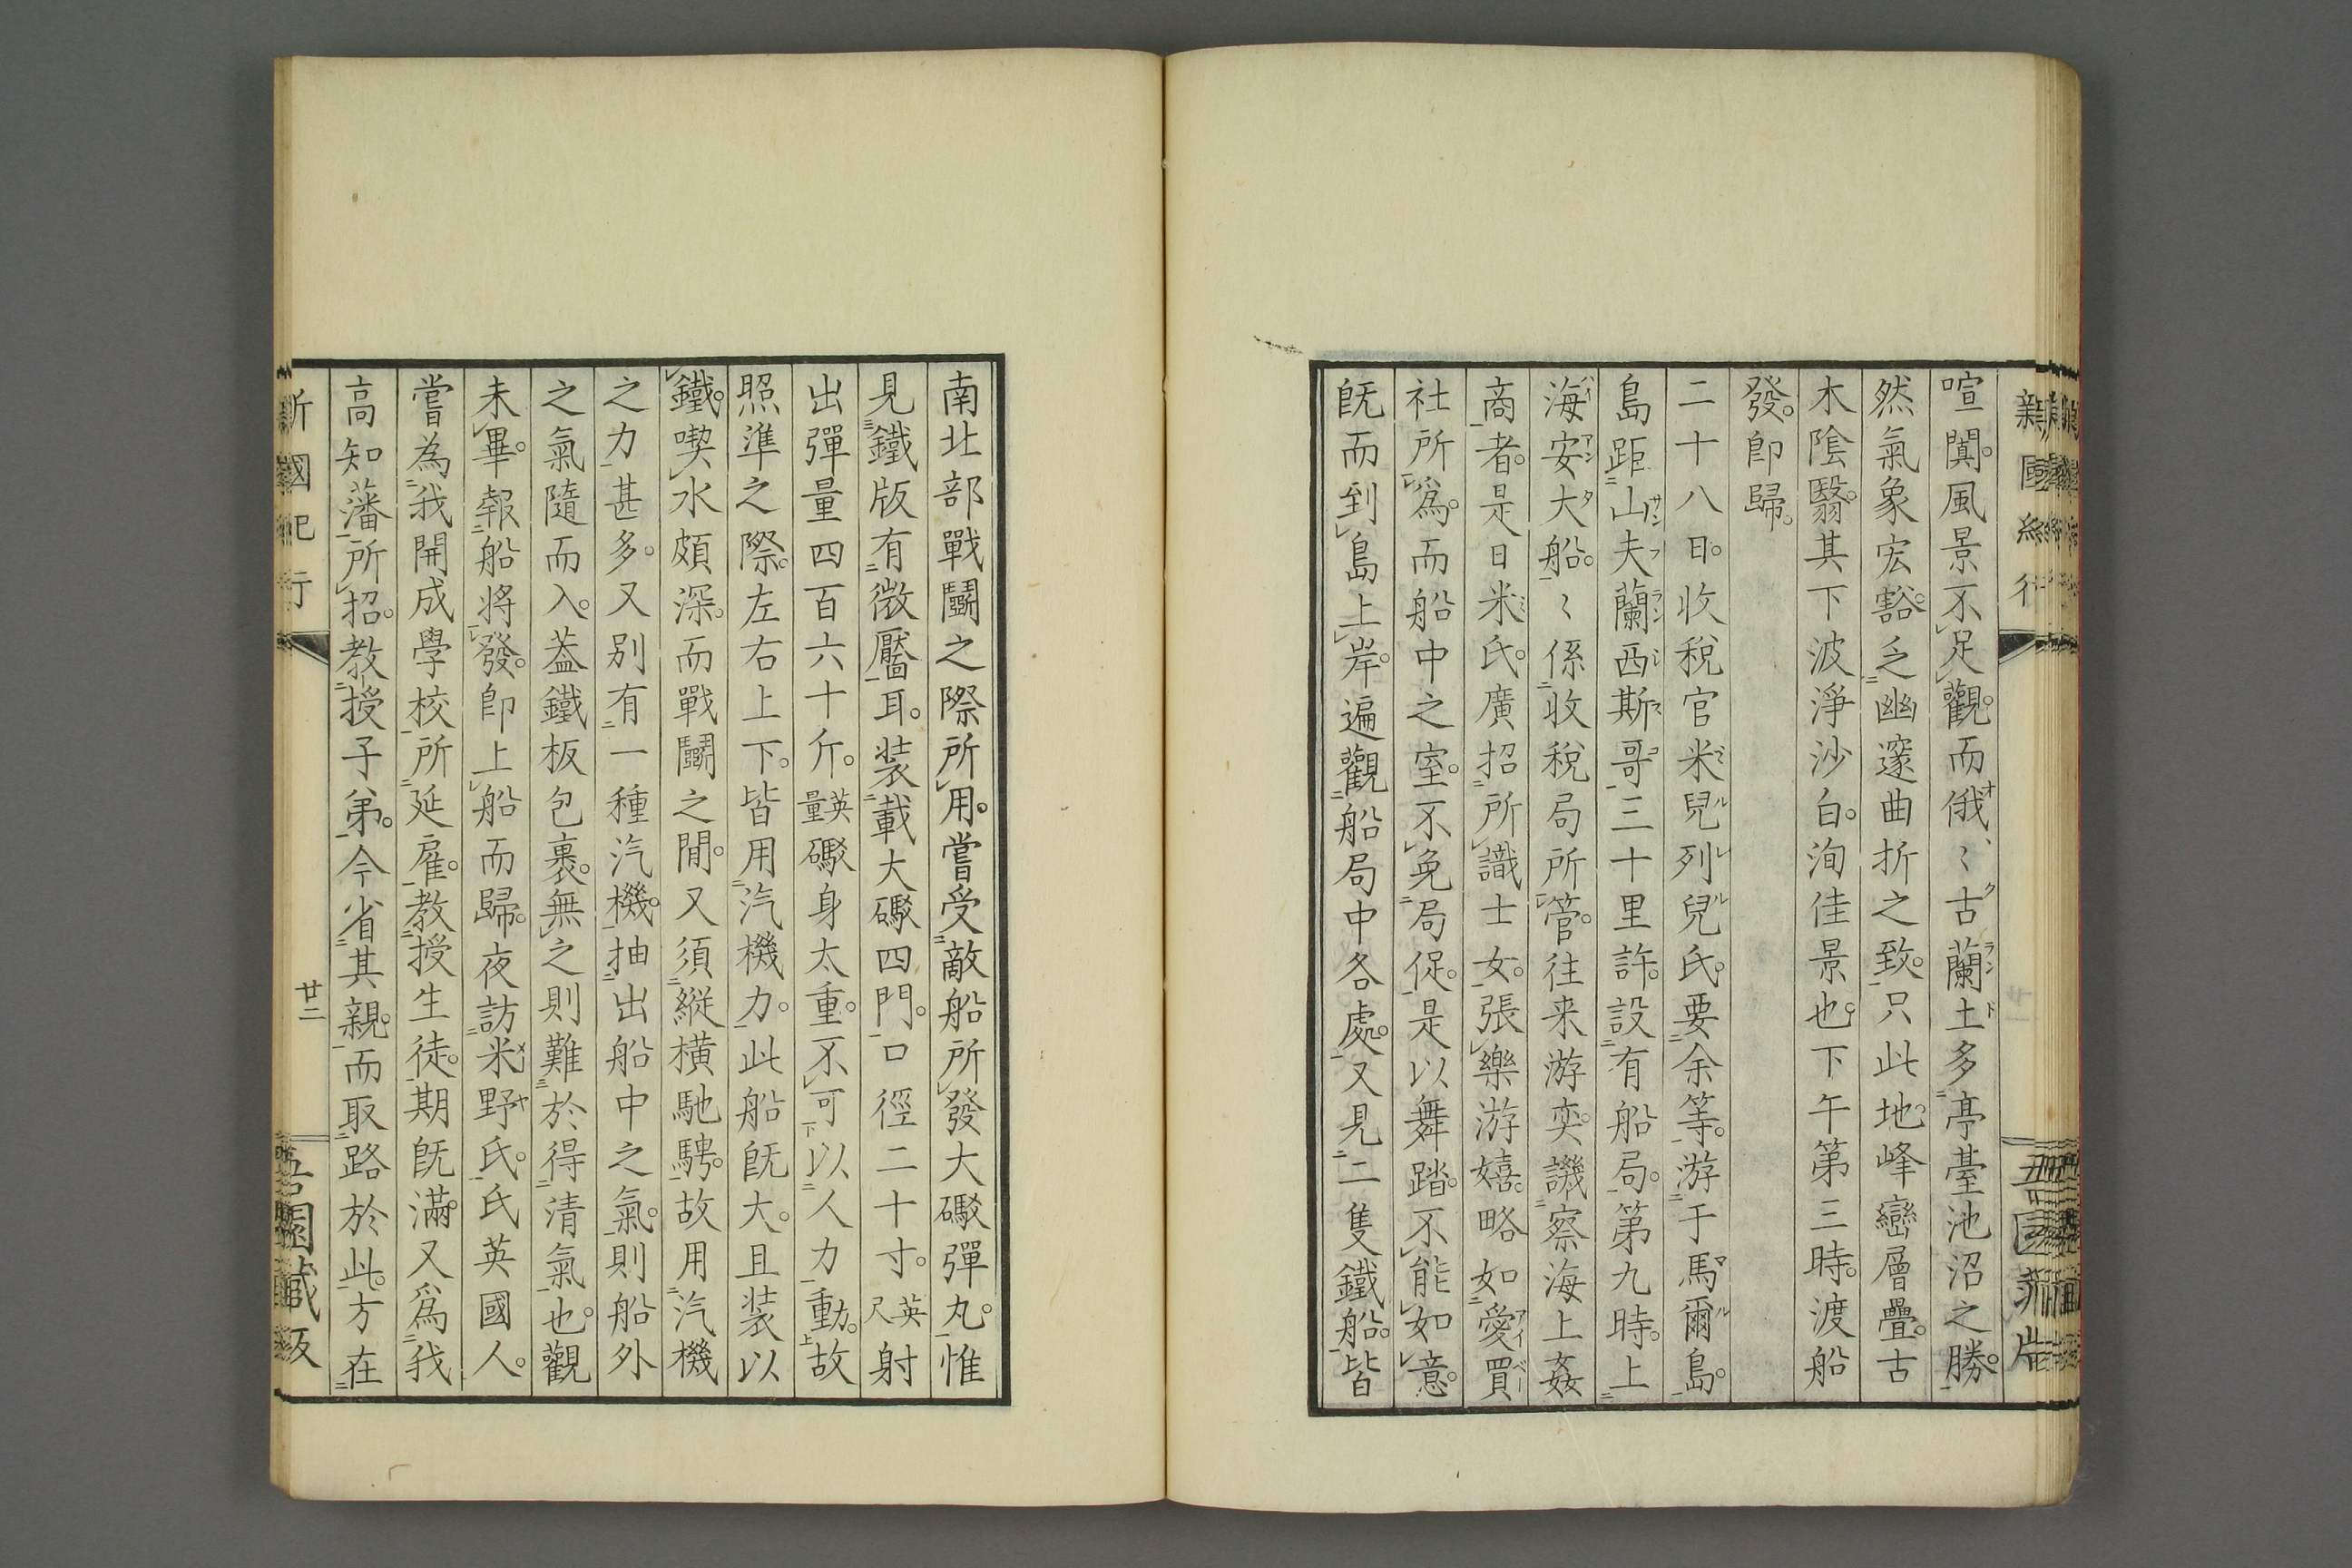 喧闐。風景不足觀。而俄〻古蘭土多亭臺池沼之勝。
然氣象宏豁。乏幽邃曲折之致。只此地峰巒層疊。古
木陰翳。其下波淨沙白。洵佳景也。下午第三時。渡船
發。卽歸。
二十八日。收稅官米兒列兒氏。要余等。游于馬爾島。
島距山夫蘭西斯哥三十里許。設有船局。第九時。上
海安大船。〻係收稅局所管。往来游奕。譏察海上姦
商者。是日米氏。廣招所識士女。張樂游嬉。略如愛買
社所為。而船中之室。不免局促。是以舞踏。不能如意。
旣而到島上岸。遍觀船局中各處。又見二隻鐵船。皆
南北部戰鬬之際所用。嘗受敵船所發大礮彈丸。惟
見鐵版有微靨耳。装載大礮四門。口徑二十寸。英尺射
出彈量四百六十斤。英量礮身太重。不可以人力動。故
照準之際。左右上下。皆用汽機力。此船旣大。且装以
鐵。喫水頗深。而戰鬬之間。又須縦横馳騁。故用汽機
之力甚多。又别有一種汽機。抽出船中之氣。則船外
之氣隨而入。葢鐵板包裹。無之則難於得清氣也。觀
未畢。報船将發。卽上船而歸。夜訪米野氏。氏英國人。
嘗為我開成學校所延雇。教授生徒。期旣滿。又為我
高知藩所招。教授子弟。今省其親。而取路於此。方在
新國紀行
廿二